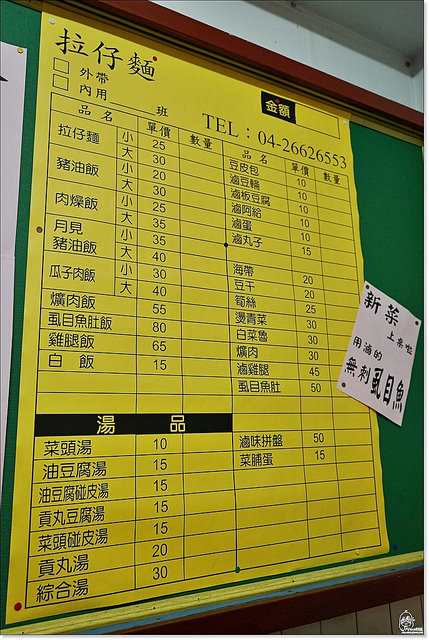 拉仔麵
外帶
內用 班
金額
TEL：04-26626553
品名 單價 數量
拉仔麵 小 25
大 30
豬油飯 小 20
大 30
肉燥飯 小 25
大 35
月見豬油飯 小 35
大 40
瓜子肉飯 小 30
大 40
爌肉飯 55
虱目魚肚飯 80
雞腿飯 65
白飯 15
品名 單價 數量
豆皮包 10
滷豆輪 10
滷板豆腐 10
滷阿給 10
滷蛋 10
滷丸子 15
海帶 20
豆干 20
筍絲 25
燙青菜 30
白菜魯 30
爌肉 30
滷雞腿 45
虱目魚肚 50
湯品
菜頭湯 10
油豆腐湯 15
油豆腐碰皮湯 15
貢丸豆腐湯 15
菜頭碰皮湯 15
貢丸湯 20
綜合湯 30
滷味拼盤 50
菜脯蛋 15
新菜
上桌啦
用滷的
無刺虱目魚